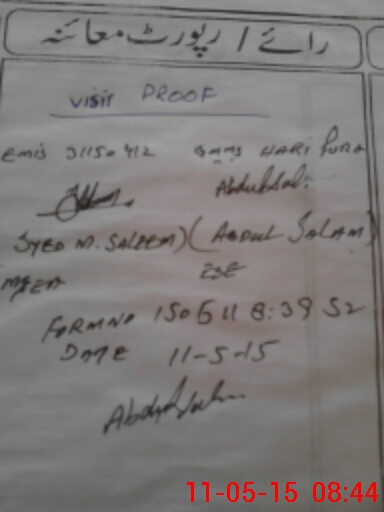 رائے / رپورٹ معائنہ
visit PROOF
EMIS 31150412 GMMS HARI PURA
Abdulsal
SYED M. SALEEM) (ABDUL SALAM)
ESE
FORM NO 150511 8:39 52
DATE 11-5-15
11-05-15 08:44